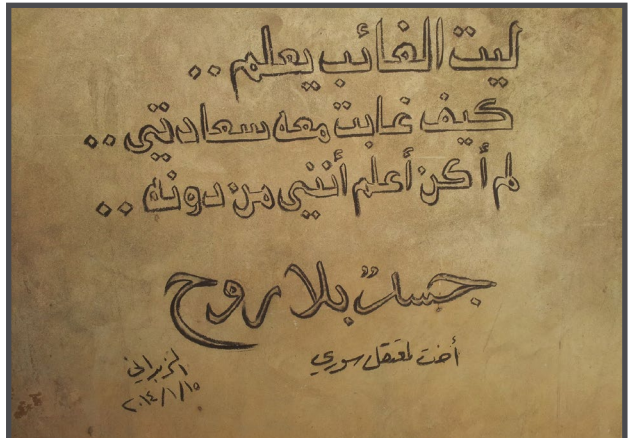 ليت الغائب يعلم ..
كيف غابت معه سعادتي ..
لم أكن أعلم أنني من دونه ..
جسدٌ بلا روح
أخت لمعتقل سوري
الزبداني
٢٠١٤/١/١٥